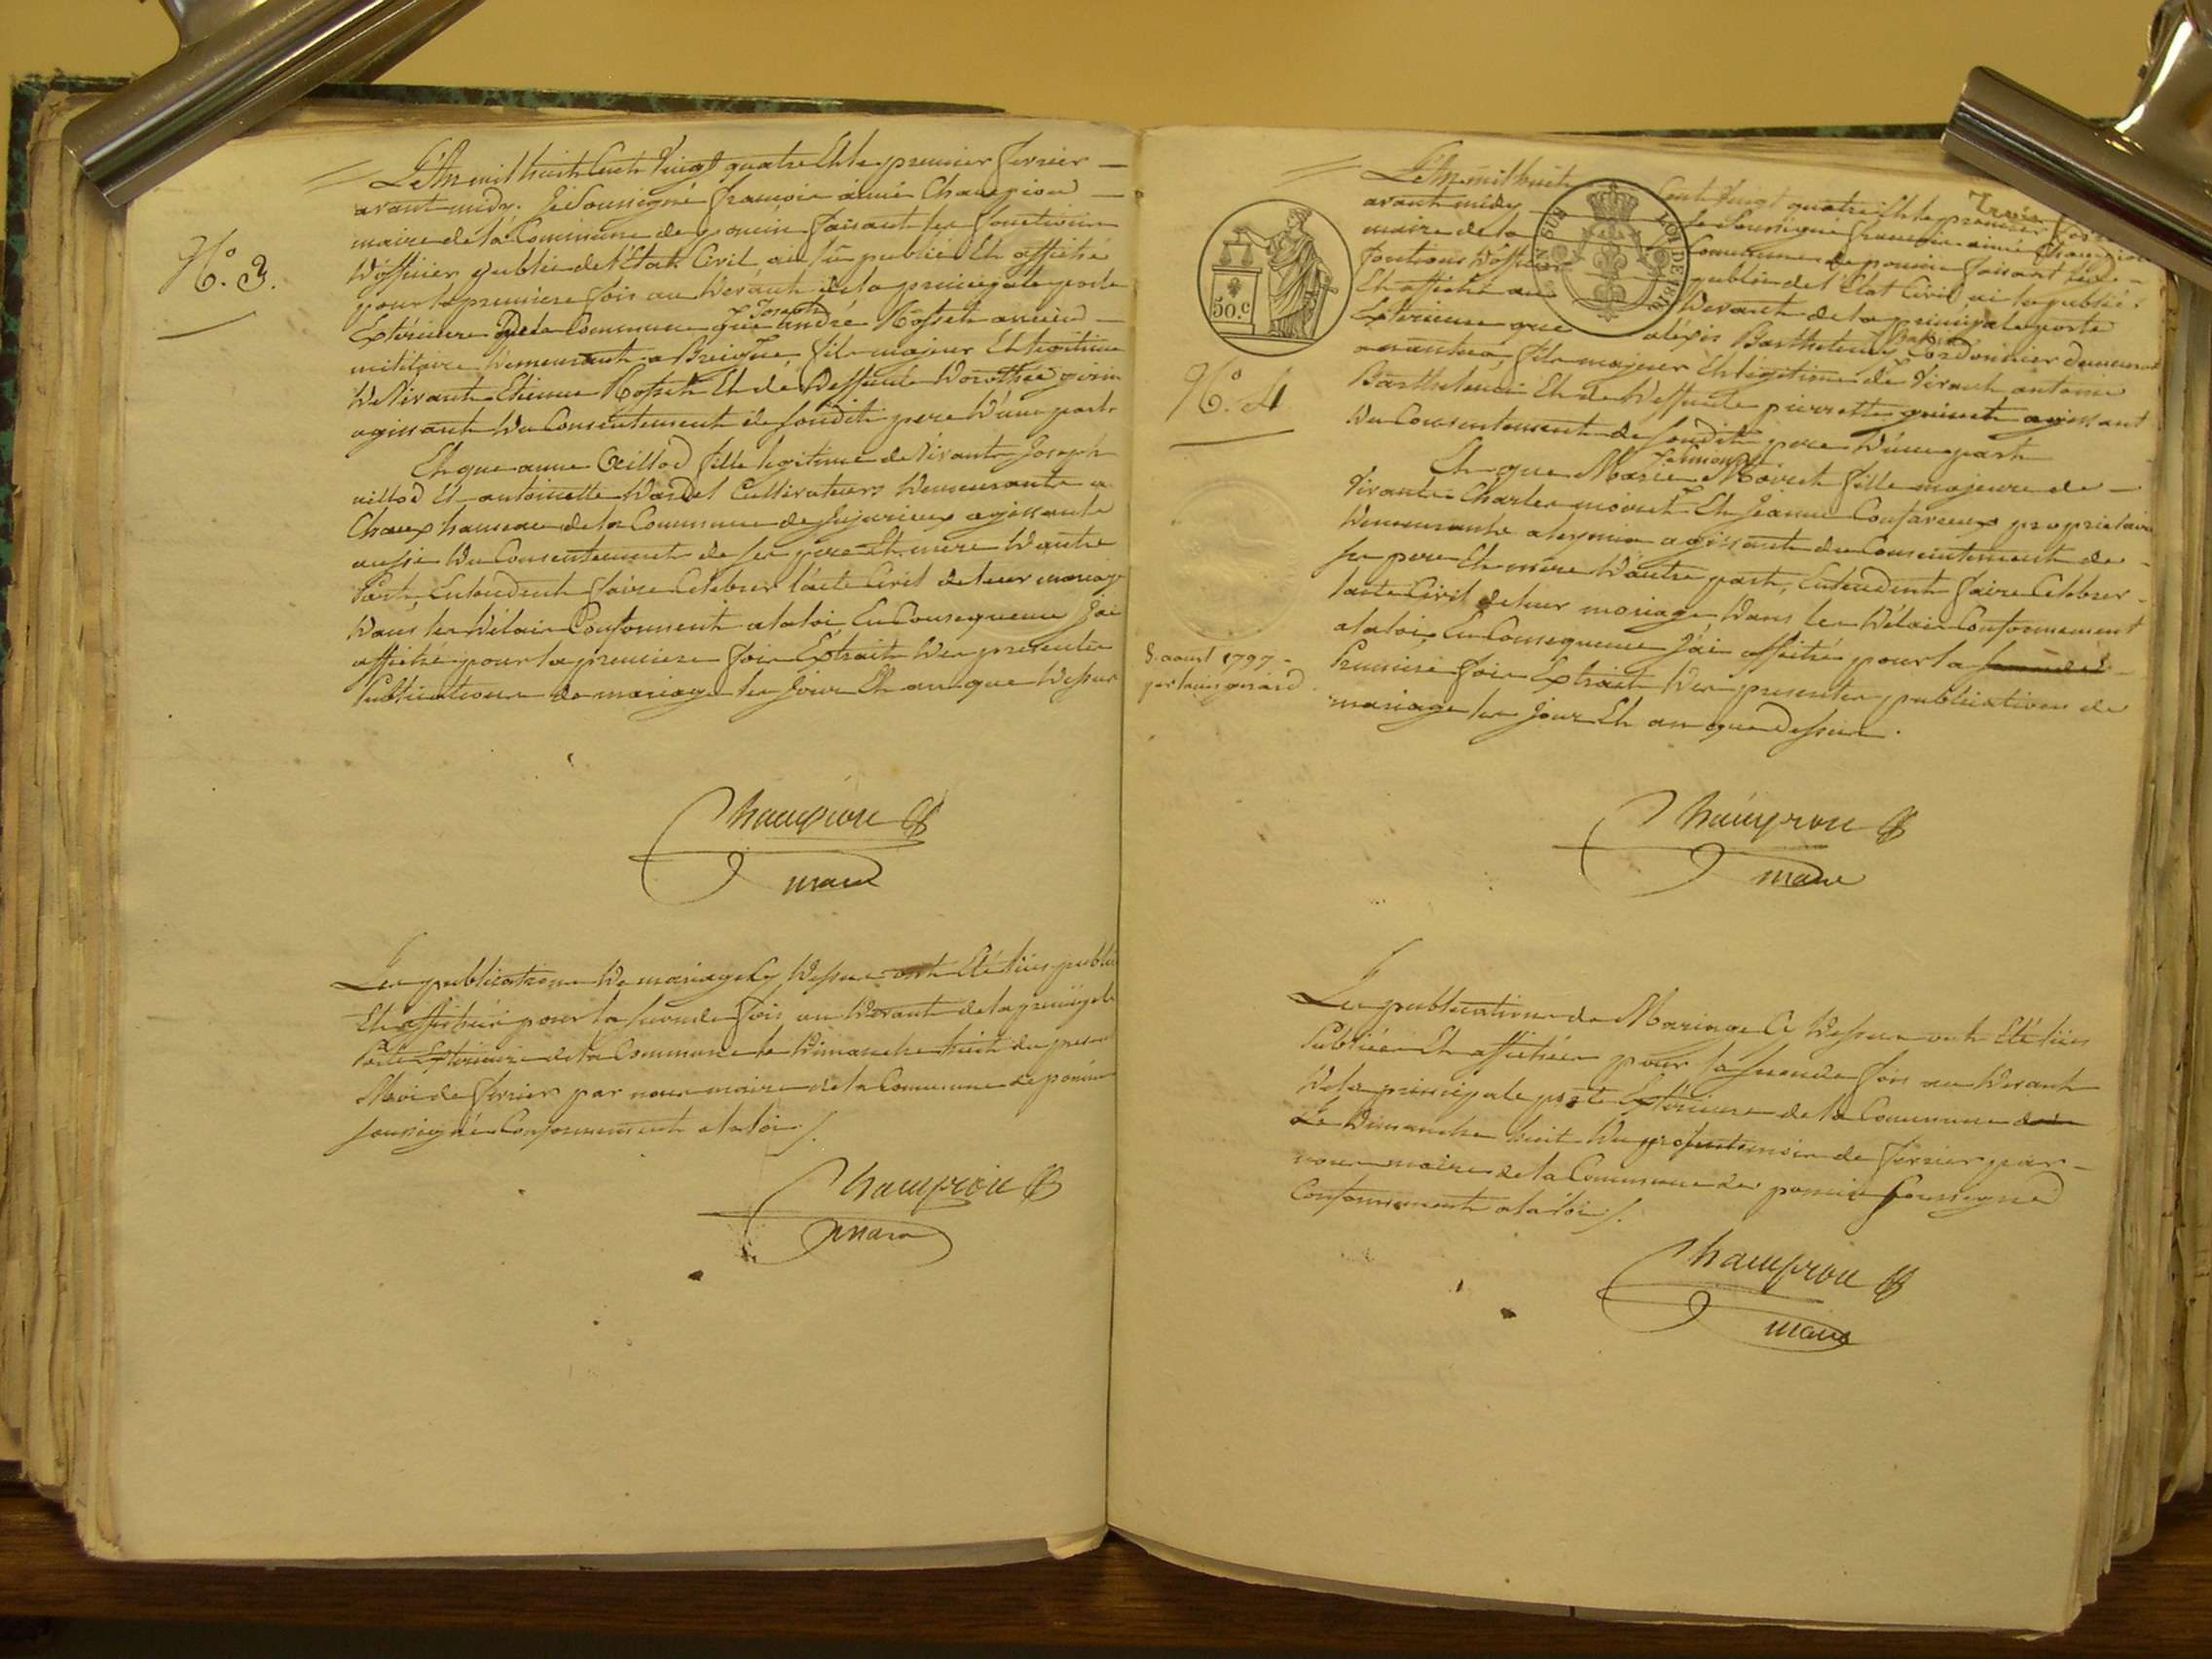 L'An mil huit Cent Vingt quatre Et le premier fevrier
avant midy. Je Soussigné françois aimé Champion
maire de la Commune de poncin faisant les fonctions
d'officier public de l'Etat Civil ai lû publié Et affiché
pour la premiere fois au devant de la principale porte
Extérieure De la Commune que andré Joseph Rosset ancien
militaire demeurant a fils majeur Et légitime
de Vivant Etienne Rosset Et de deffunte Dorothée
agissant du Consentement de sondit pere d'une part
N.º 3.
Et que anne Fille legitime de Vivants Joseph
Et antoinette Cultivateurs demeurants a
Chaux hameau de la Commune de Jujurieux agissante
aussi du Consentement de ses pere Et mere d'autre
Part Entendent faire Celebrer l'acte Civil de leur mariage
dans les délais Conforment a la loi En Consequence J'ai
affiché pour la premiere fois Extrait des presentes
Publications de mariage les Jour Et an que dessus
Champion
maire
Les publications de mariage Cy dessus ont Eté lües publiées
Et affichées pour la seconde fois au devant de la principale
Porte Extérieure de la Commune le Dimanche huit du present
Mois de fevrier par nous maire de la Commune de poncin
soussigné Conformement a la loi
Champion
maire
Trois
L'An mil huit Cent Vingt quatre Et le premier
avant midy Je Soussigné françois aimé Champion
maire de la Commune de poncin faisant les
fonctions d'officier public de l'Etat Civil ai lu publié
Et affiché au devant de la principale porte
Extérieure que aléxis Barthelemy Cordonnier demeurant
50.c
LOI DE 1816
N.º 4
a nantua, fils majeur Et légitime de Vivant antoine
Barthelemi Et de deffunte pierrette agissant
du Consentement de sondit pere d'une part
Et que Marie Moiret fille majeure de
Vivants Charles moiret Et Jeanne propriétaires
demeurante a agissante du Consentement de
ses pere Et mere d'autre part, Entendent faire Celebrer
l'acte Civil de leur mariage dans les délais Conformement
a la loi, En Consequence J'ai affiché pour la
Premiere fois Extrait des presentes publications de
mariage les Jour Et an que dessus.
8. aoust 1797
Champion
maire
Les publications de Mariage Ci dessus ont Eté lües
Publiées Et affichées pour la seconde fois au devant
de la principale porte Extérieure de la Commune
Le Dimanche huit du present mois de fevrier par
nous maire de la Commune de poncin soussigné
Conformement a la loi
Champion
maire